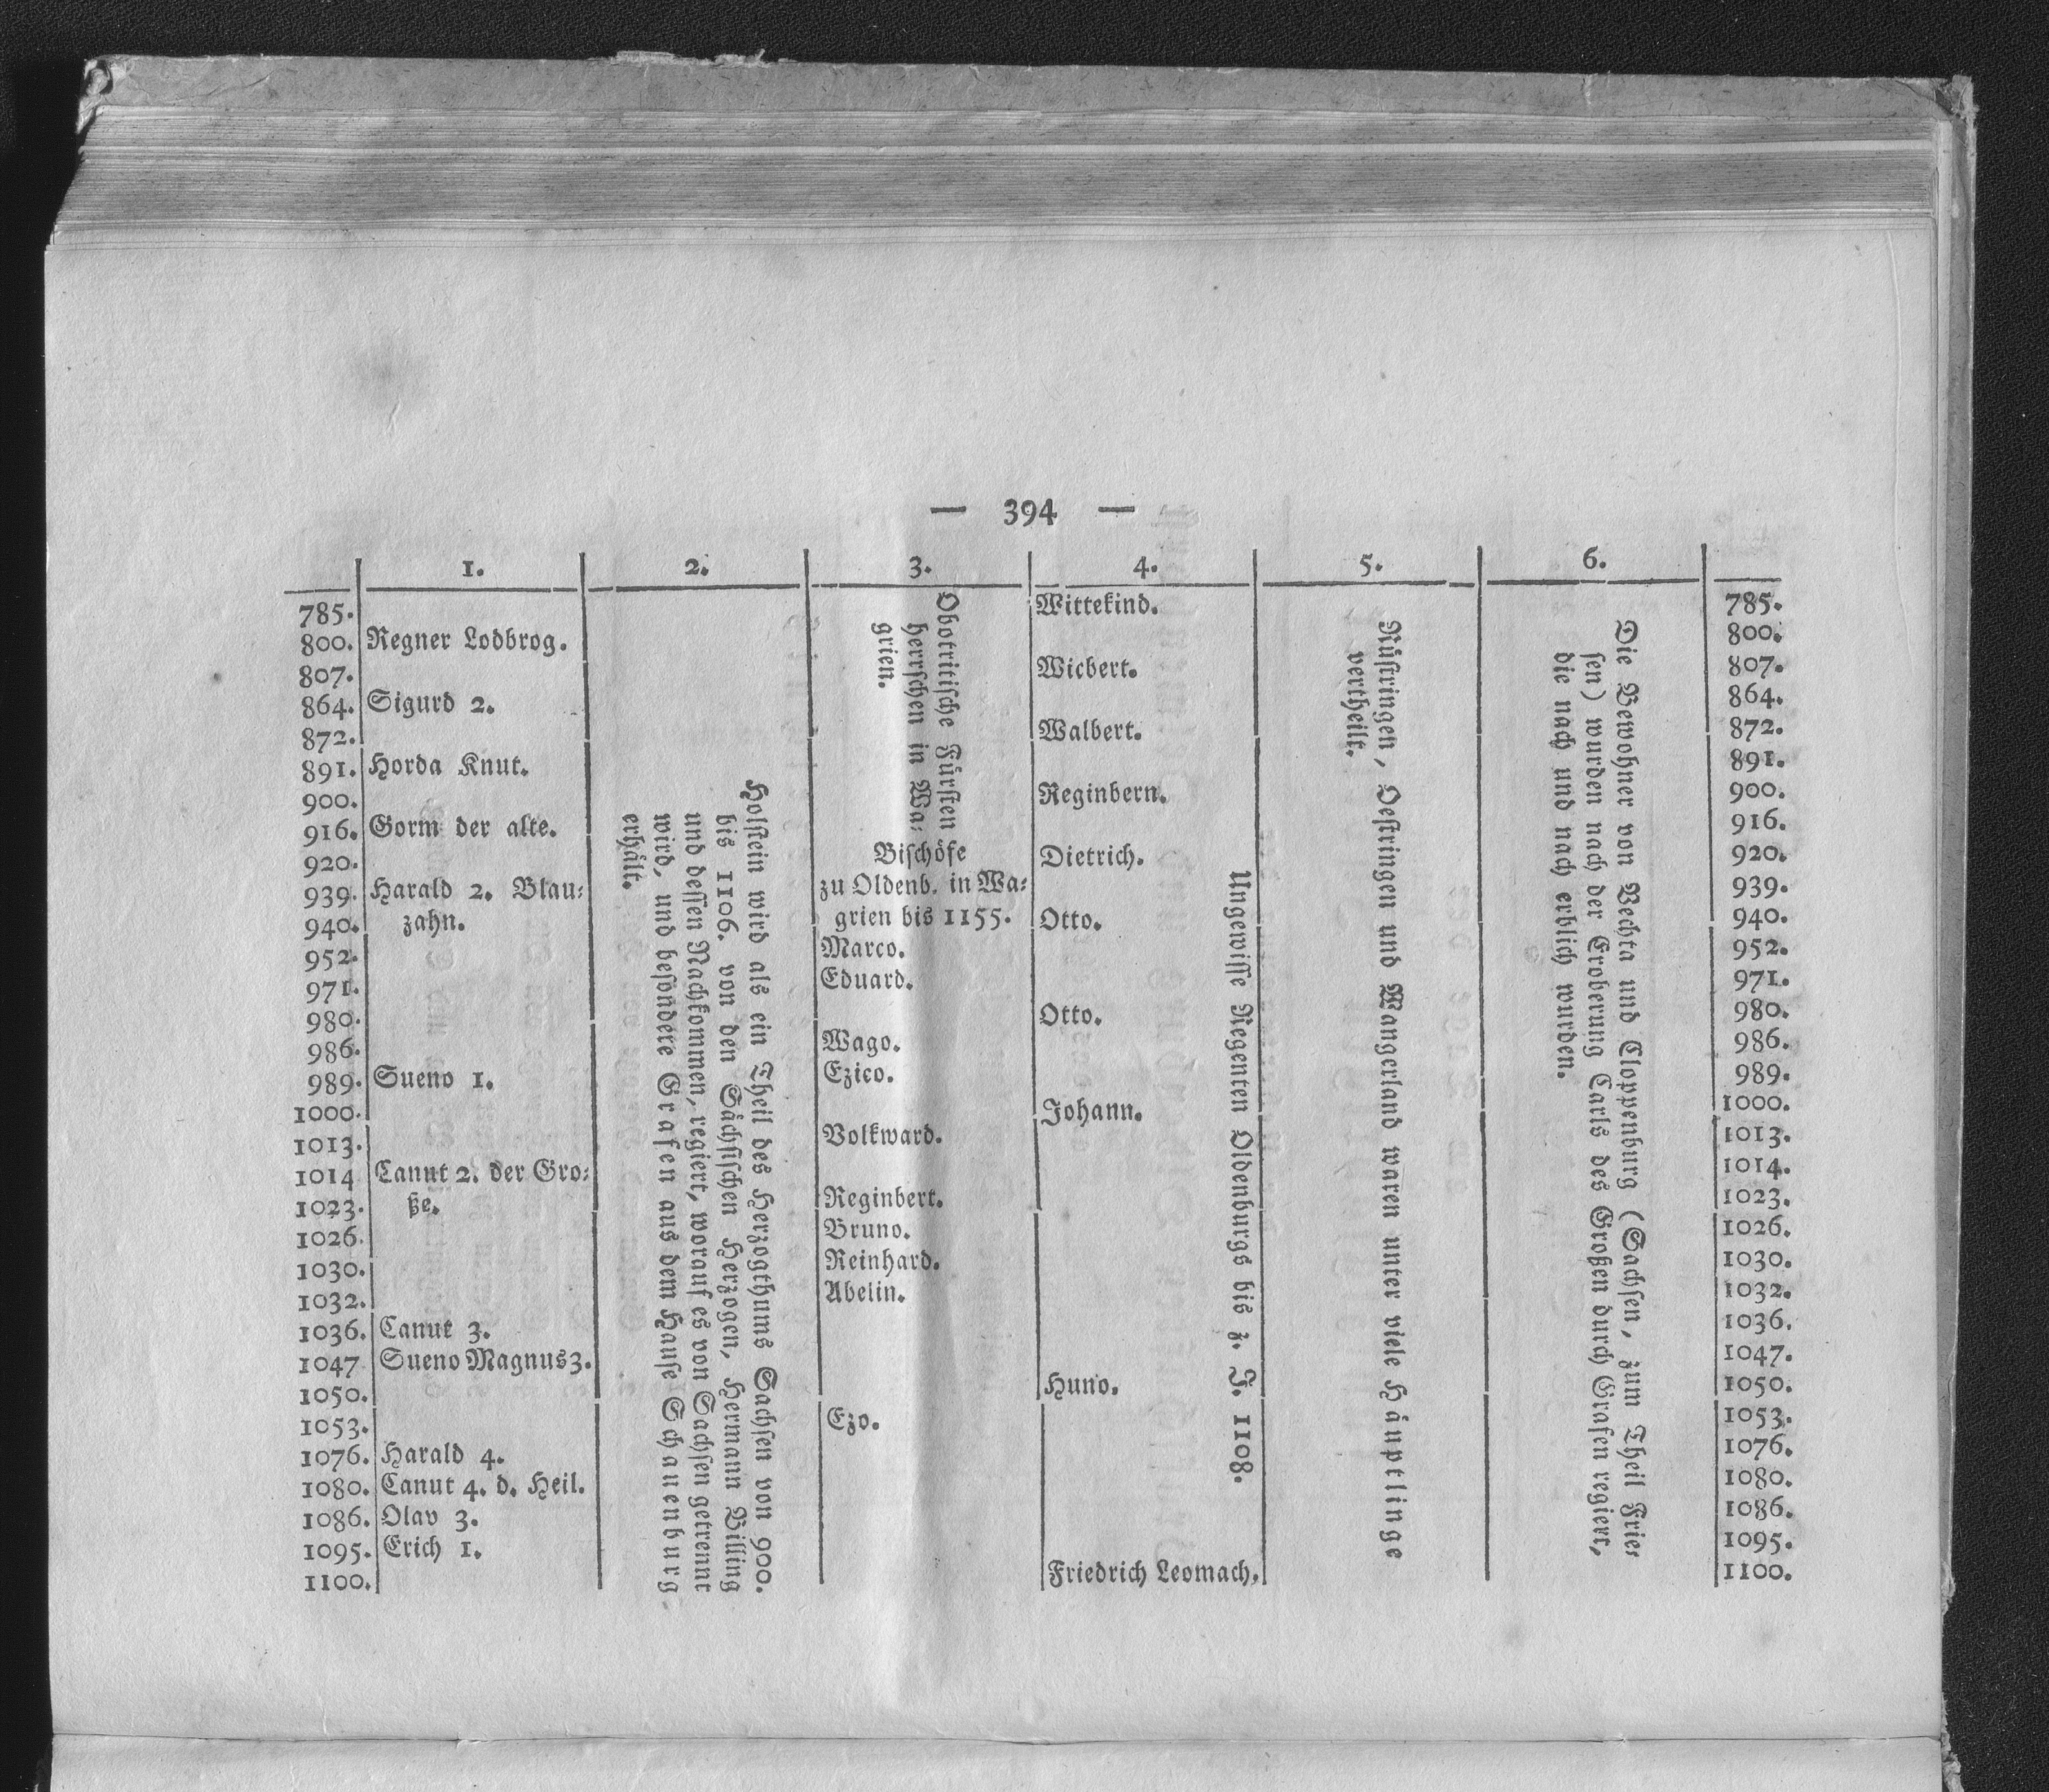 — 394 —
1. 2. 3. 4. 5. 6.
785. Wittekind. 785.
800. Regner Lodbrog. 800.
807. Wicbert. 807.
864. Sigurd 2. 864.
872. Walbert. 872.
891. Horda Knut. 891.
900. Reginbern. 900.
916. Gorm der alte. 916.
920. Bischöfe Dietrich. 920.
939. Harald 2. Blau- zu Oldenb. in Wa- 939.
940. zahn. grien bis 1155. Otto. 940.
952. Marco. 952.
971. Eduard. 971.
980. Otto. 980.
986. Wago. 986.
989. Sueno 1. Ezico. 989.
1000. Johann. 1000.
1013. Volkward. 1013.
1014 Canut 2. der Gro- 1014.
1023. ße. Reginbert. 1023.
1026. Bruno. 1026.
1030. Reinhard. 1030.
1032. Abelin. 1032.
1036. Canut 3. 1036.
1047 Sueno Magnus 3. 1047.
1050. Huno. 1050.
1053. Ezo. 1053.
1076. Harald 4. 1076.
1080. Canut 4. d. Heil. 1080.
1086. Olav 3. 1086.
1095. Erich 1. 1095.
1100. Friedrich Leomach. 1100.
Holstein wird als ein Theil des Herzogthums Sachsen von 900.
bis 1106. von den Sächsischen Herzogen, Hermann Billing
und dessen Nachkommen, regiert, worauf es von Sachsen getrennt
wird, und besondere Grafen aus dem Hause Schauenburg
erhält.
Obotritische Fürsten
herrschen in Wa-
grien.
Ungewisse Regenten Oldenburgs bis z. J. 1108.
Rüstringen, Oestringen und Wangerland waren unter viele Häuptlinge
vertheilt.
Die Bewohner von Vechta und Cloppenburg (Sachsen, zum Theil Frie-
sen) wurden nach der Eroberung Carls des Großen durch Grafen regiert,
die nach und nach erblich wurden.